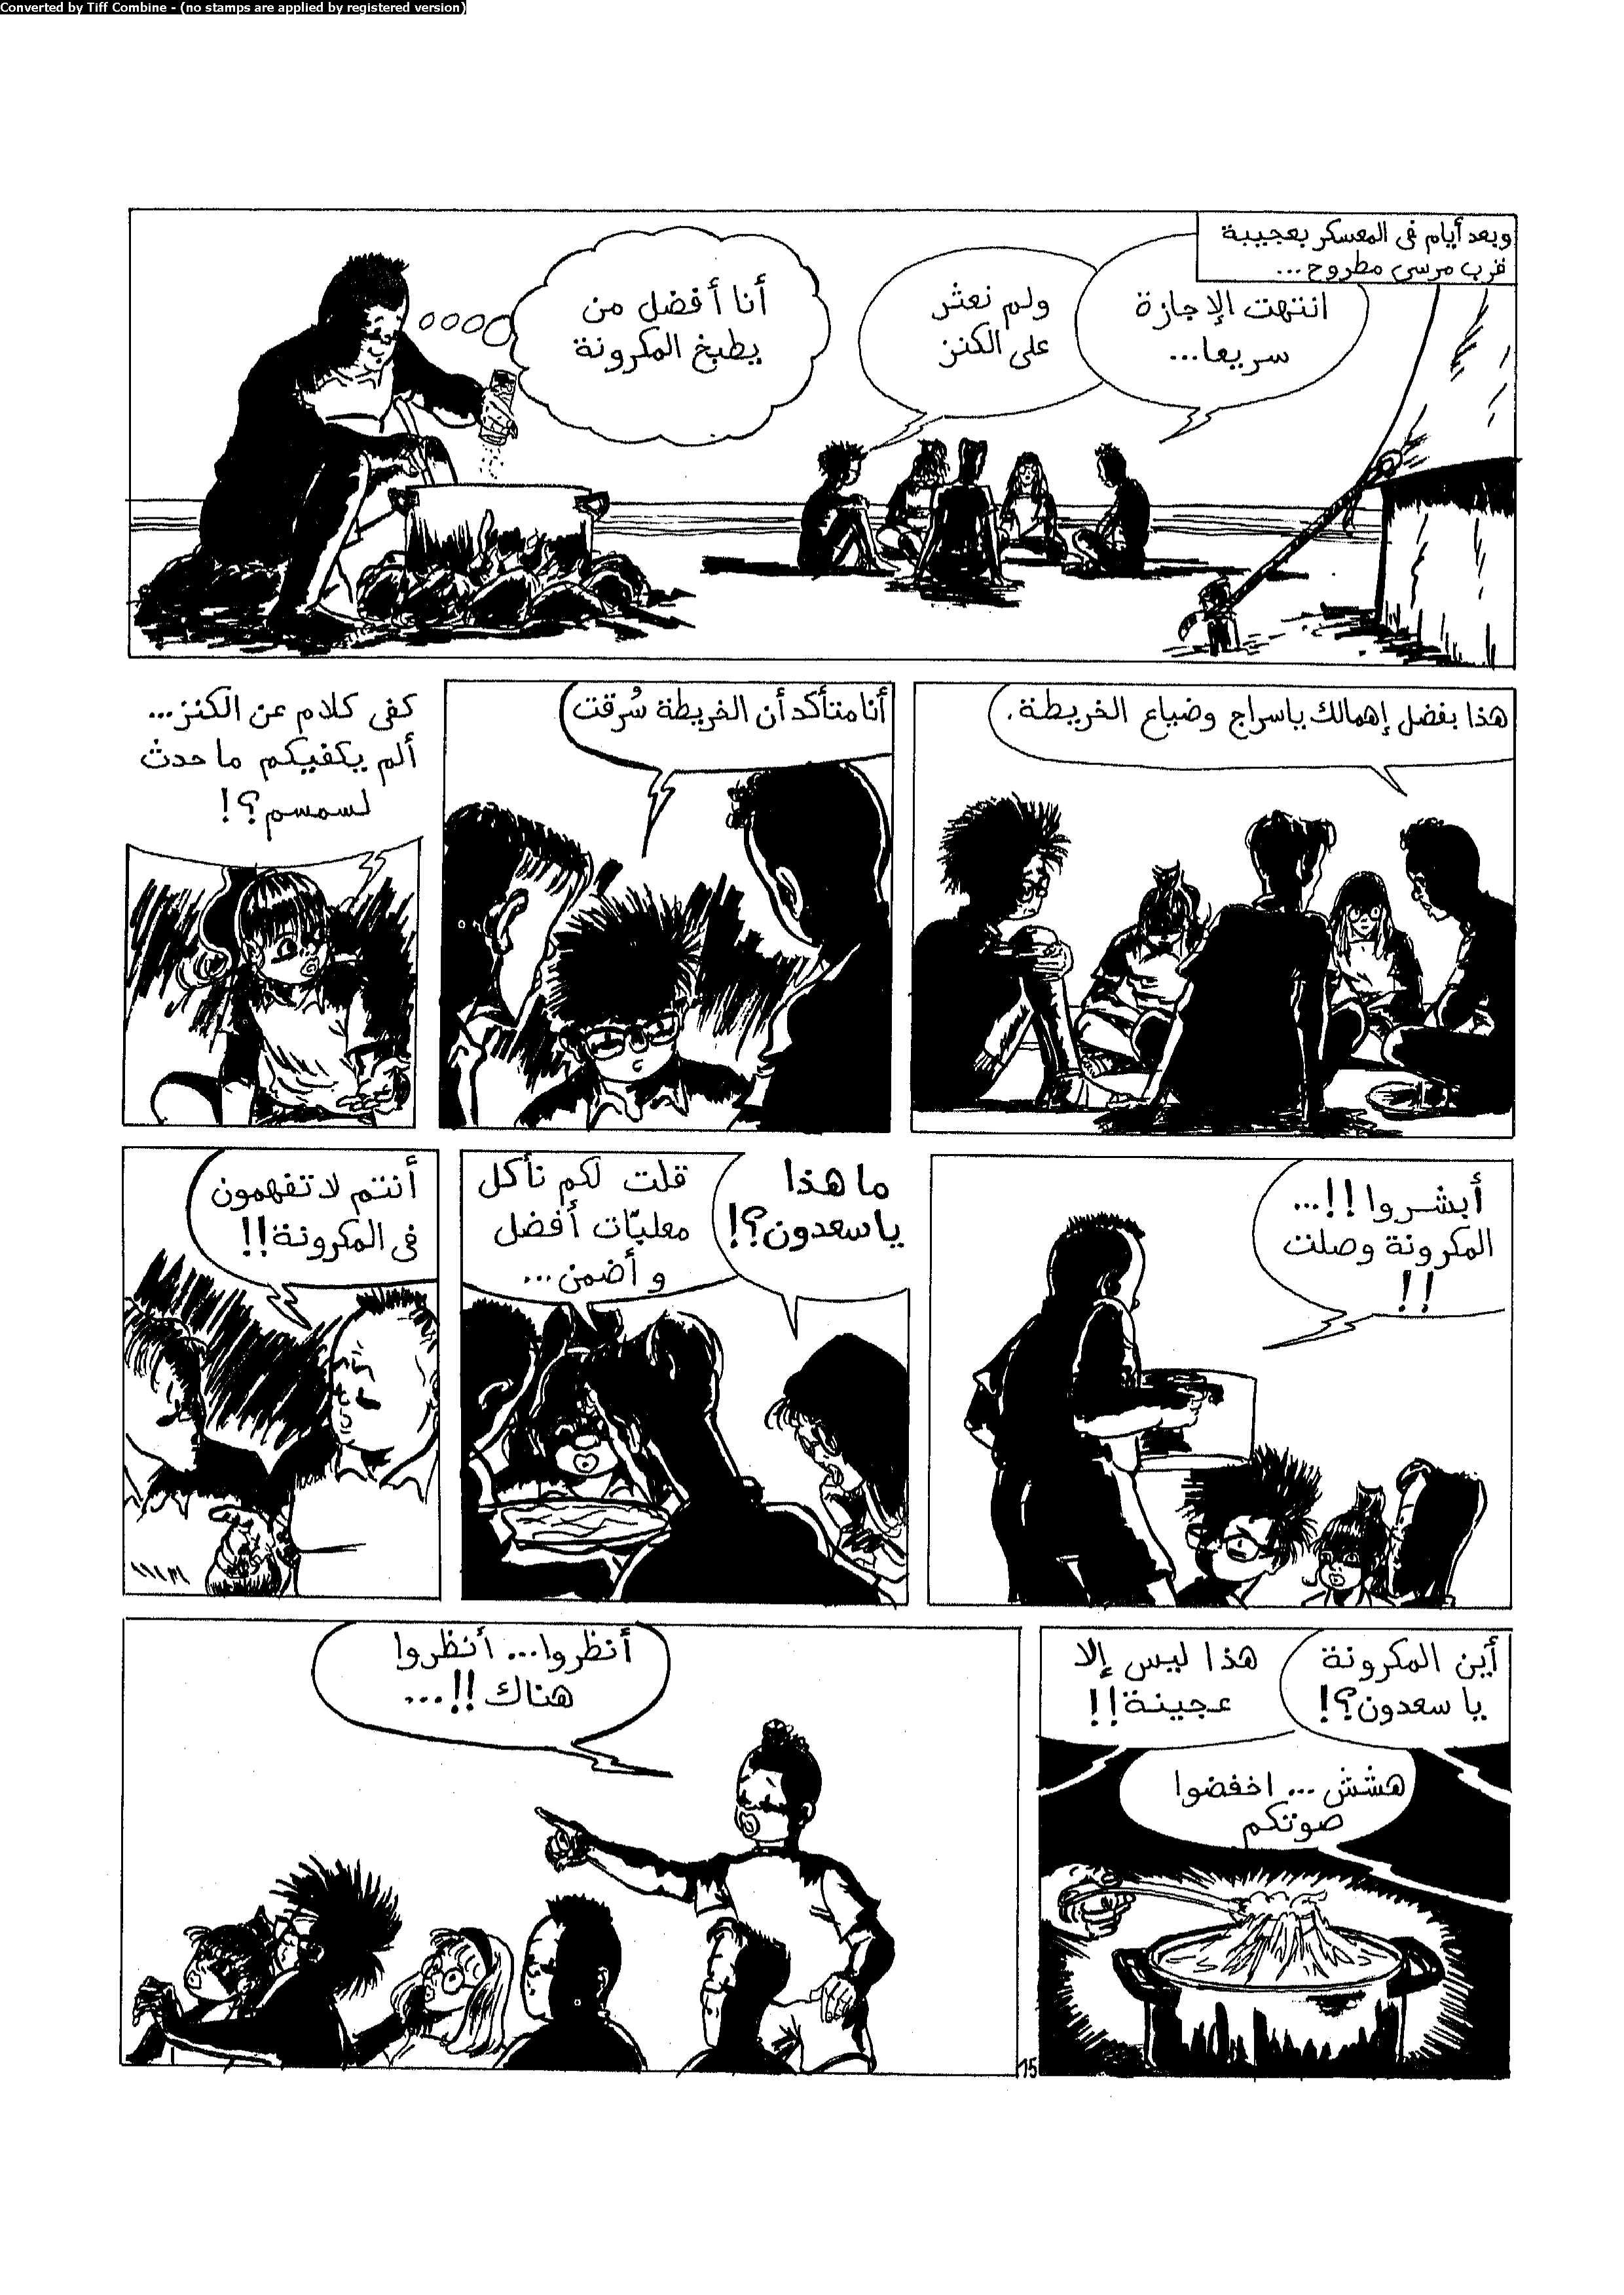 Converted by Tiff Combine - (no stamps are applied by registered version)
وبعد أيام فى المعسكر بعجيبة
قرب مرسى مطروح...
انتهت الإجازة
سريعا...
ولم نعثر
على الكنز
أنا أفضل من
يطبخ المكرونة
هذا بفضل إهمالك ياسراج وضياع الخريطة.
أنا متأكد أن الخريطة سُرقت
كفى كلام عن الكنز...
ألم يكفيكم ما حدث
لسمسم؟!
أبشروا!!...
المكرونة وصلت
!!
ما هذا
ياسعدون؟!
قلت لكم نأكل
معلبّات أفضل
و أضمن...
أنتم لا تفهمون
فى المكرونة!!
أين المكرونة
يا سعدون؟!
هذا ليس إلا
عجينة!!
هشش... اخفضوا
صوتكم
أنظروا... أنظروا
هناك!!...
15